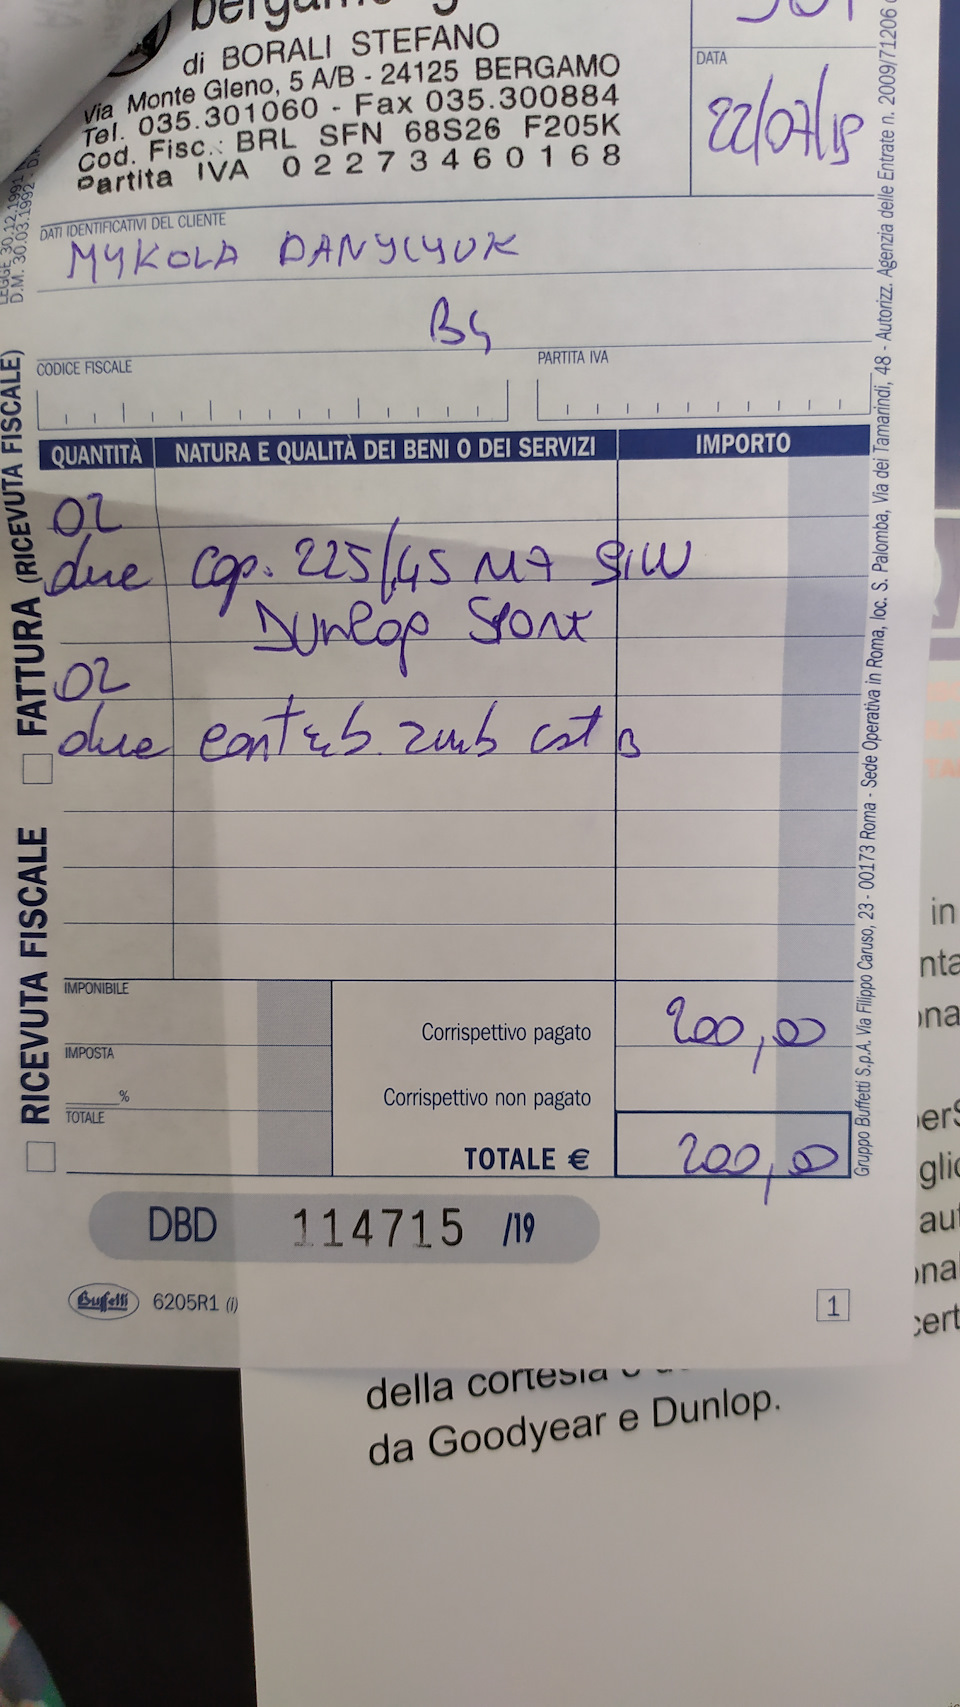 di BORALI STEFANO
Via Monte Gleno, 5 A/B - 24125 BERGAMO
Tel. 035.301060 - Fax 035.300884
Cod. Fisc.: BRL SFN 68S26 F205K
Partita IVA 02273460168
DATA
22/07/19
DATI IDENTIFICATIVI DEL CLIENTE
MYKOLA DANYLYUK
BG
CODICE FISCALE
PARTITA IVA
QUANTITÀ NATURA E QUALITÀ DEI BENI O DEI SERVIZI IMPORTO
02
due cop. 225/45 91W
Dunlop Sport
02
due contrib. cat B
IMPONIBILE
Corrispettivo pagato 200,00
IMPOSTA
%
Corrispettivo non pagato
TOTALE
TOTALE € 200,00
DBD 114715 /19
Buffetti 6205R1 (i)
1
RICEVUTA FISCALE
FATTURA (RICEVUTA FISCALE)
LEGGE 30.12.1991
D.M. 30.03.1992
Gruppo Buffetti S.p.A. Via Filippo Caruso, 23 - 00173 Roma - Sede Operativa in Roma, loc. S. Palomba, Via dei Tamarindi, 48 - Autorizz. Agenzia delle Entrate n. 2009/71206
in
della cortesia
da Goodyear e Dunlop.